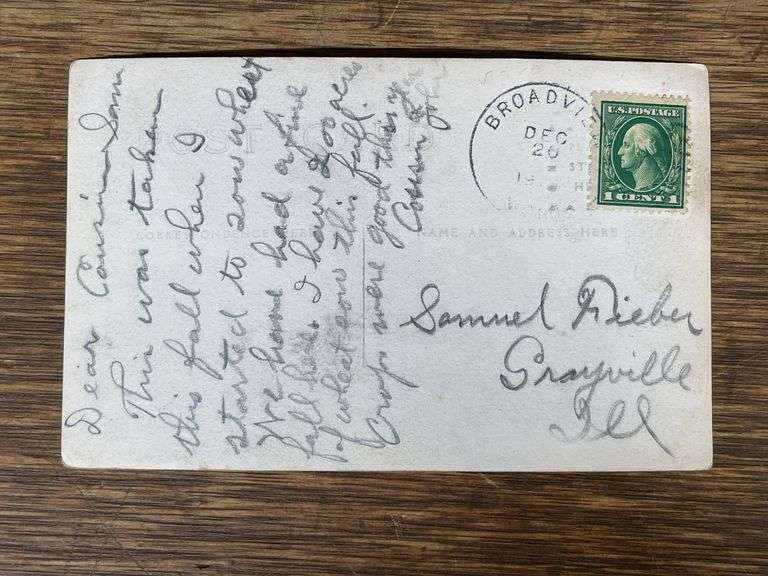 Dear Cousin Sam
This was taken
this fall when I
started to sow wheat
We have had a fine
fall here. I have 200 acres
of wheat sown this fall.
Crops were good this yr
Cousin
John
POST CARD
CORRESPONDENCE HERE
NAME AND ADDRESS HERE
BROADVIE
DEC
20
U.S. POSTAGE
1 CENT 1
Samuel Fieber
Grayville
Ill